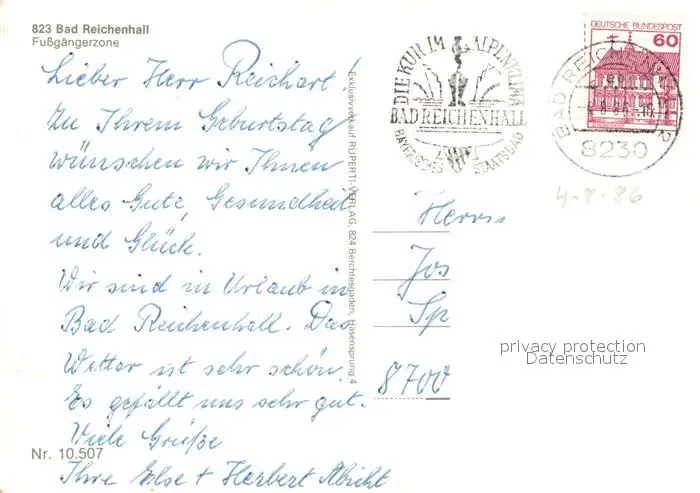 823 Bad Reichenhall
Fußgängerzone
Lieber Herr Reichart!
Zu Ihrem Geburtstag
wünschen wir Ihnen
alles Gute, Gesundheit
und Glück.
Wir sind in Urlaub in
Bad Reichenhall. Das
Wetter ist sehr schön.
Es gefällt uns sehr gut.
Viele Grüße
Ihre Else + Herbert
Nr. 10.507
Exklusivverkauf RUPERTI-VERLAG, 824 Berchtesgaden, Hasensprung 4
DIE KUR IM ALPENKLIMA
BAD REICHENHALL
BAYERISCHES STAATSBAD
DEUTSCHE BUNDESPOST
60
BAD REICHENHALL
8230
4-8-86
Herrn
Jos
Sp
8700
privacy protection
Datenschutz